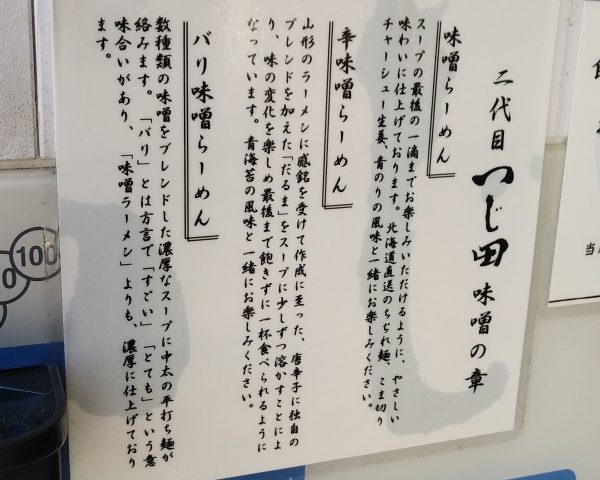 二代目 つじ田 味噌の章
味噌らーめん
スープの最後の一滴までお楽しみいただけるように、やさしい
味わいに仕上げております。北海道直送のちぢれ麺、こま切り
チャーシュー生姜、青のりの風味と一緒にお楽しみください。
辛味噌らーめん
山形のラーメンに感銘を受けて作成に至った、唐辛子に独自の
ブレンドを加えた「だるま」をスープに少しずつ溶かすことによ
り、味の変化を楽しめ最後まで飽きずに一杯食べられるように
なっています。青海苔の風味と一緒にお楽しみください。
バリ味噌らーめん
数種類の味噌をブレンドした濃厚なスープに中太の平打ち麺が
絡みます。「バリ」とは方言で「すごい」「とても」という意
味合いがあり、「味噌ラーメン」よりも、濃厚に仕上げており
ます。
100
当